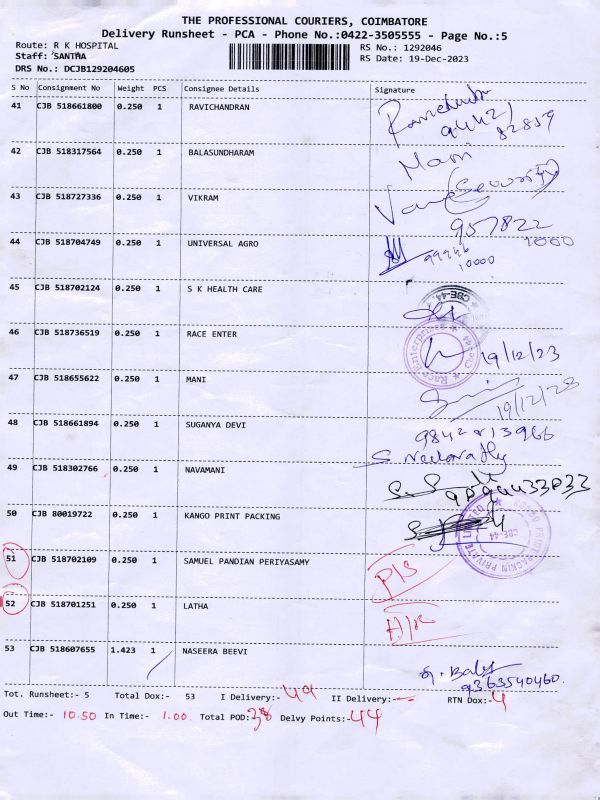 THE PROFESSIONAL COURIERS, COIMBATORE
Delivery Runsheet - PCA - Phone No.:0422-3505555 - Page No.:5
Route: R K HOSPITAL
RS No.: 1292046
Staff: SANTHA
RS Date: 19-Dec-2023
DRS No.: DCJB129204605
S No Consignment No Weight PCS Consignee Details Signature
41 CJB 518661800 0.250 1 RAVICHANDRAN
94421
82859
42 CJB 518317564 0.250 1 BALASUNDHARAM Mani
(Security)
43 CJB 518727336 0.250 1 VIKRAM
957822
1000
44 CJB 518704749 0.250 1 UNIVERSAL AGRO
99946
10000
45 CJB 518702124 0.250 1 S K HEALTH CARE CBE-44
46 CJB 518736519 0.250 1 RACE ENTER Race Enterprises 19/12/23
47 CJB 518655622 0.250 1 MANI
19/12/23
48 CJB 518661894 0.250 1 SUGANYA DEVI
49 CJB 518302766 0.250 1 NAVAMANI
50 CJB 80019722 0.250 1 KANGO PRINT PACKING CBE-44
51 CJB 518702109 0.250 1 SAMUEL PANDIAN PERIYASAMY P/S
52 CJB 518701251 0.250 1 LATHA
53 CJB 518607655 1.423 1 NASEERA BEEVI
9363540460.
Tot. Runsheet:- 5 Total Dox:- 53 I Delivery:- 49 II Delivery:- RTN Dox:- 4
Out Time:- 10.50 In Time:- 1.00 Total POD: 38 Delvy Points:- 44